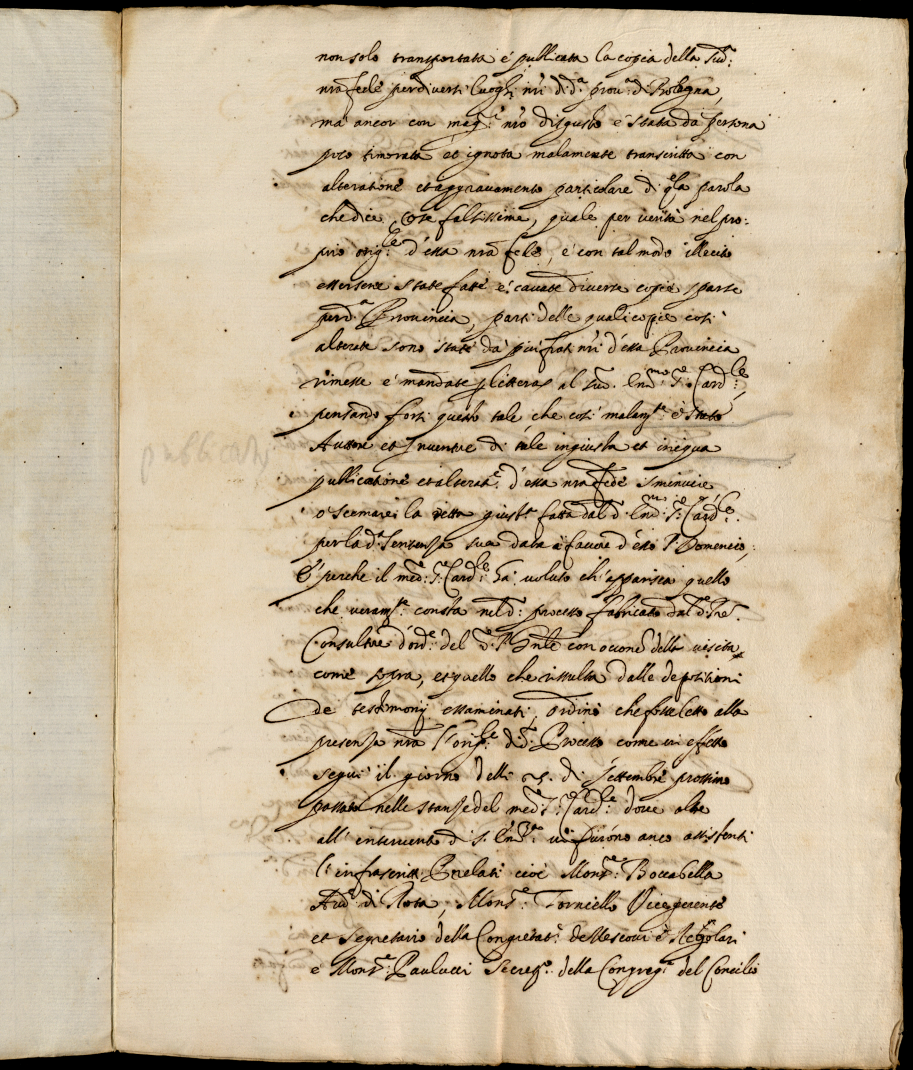 non solo transportata é publicata la copia della sud.ª
nrã fede per diuersi luoghi nrĩ di d.ª prou.ª di Bologna,
mà ancor con mag.r nrõ disgusto é stata da persona
poco timorata et ignota malamente transcritta con
alteratione et aggravamento particolare di q.la parola
che dice, Cose falsissime, quale per verità nel pro:
prio orig.le d'essa nrã fede, é con tal modo illecito
essersene state fatte é cauate diuerse copie sparse
per d.ª Prouincia, parti delle quali copie così
alterate sono state dà più frati nrĩ d'essa Prouincia
rimesse é mandate p lettera al sud. Em.mo S.r Card.le,
pensando forsi questo tale, che così malam.te é stato
Auttore et Inuentore di tale ingiusta et iniqua
publicatione et alterat.e d'essa nrã fede sminuire
publicati
o scemare la retta giust.ª fatta dal d. Em.mo S.r Card.le
per la d.ª sentenza sua data à fauore d'esso P. Domenico;
E perche il med.º S.r Card.le hà uoluto ch'apparisca quello
che veram.te consta nel d.º processo fabricato dal d.º Pre
Consultore d'ord.e del P. Gnle con occone della visita,
come sopra, et quello che risulta dalle depositioni
de testimonij essaminati, ordinò che fosse letto alla
presenza nrã l'orig.le d.º Processo come in effetto
seguì il giorno delli 25. di Settembre prossimo
passato nelle stanze del med.º S.r Card.le doue oltre
all'interuento di S. Em.za ui furono anco assistenti
l'infrascritti Prelati cioè Mons.r Boccabella
Aud.re di Rota, Mons.r Torniello Vicegerente
et Segretario della Congregat.e de Vescoui é Regolari
e Mons.r Paulucci Secret.º della Congreg.e del Concilio